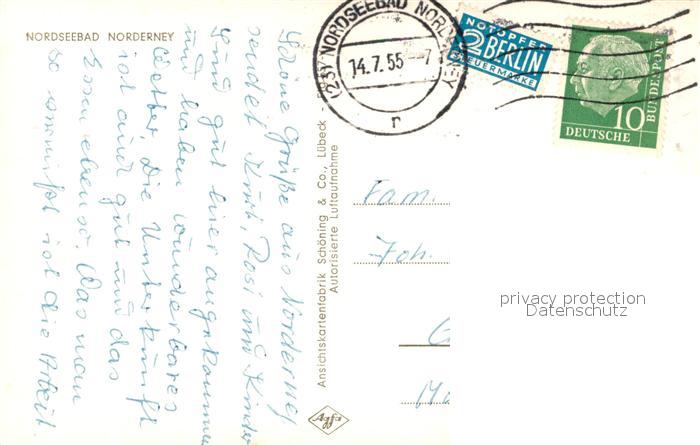 NORDSEEBAD NORDERNEY
Schöne Grüße aus Norderney
sendet Kurt, Rosi und Kinder
Sind gut hier angekommen
und haben wunderbares
Wetter. Die Unterkunft
ist auch gut und das
Essen ebenso. Was man
so vermißt ist die Arbeit
Ansichtskartenfabrik Schöning & Co., Lübeck
Autorisierte Luftaufnahme
Agfa
(23) NORDSEEBAD NORDERNEY
14.7.55 -7
r
NOTOPFER
2 BERLIN
STEUERMARKE
10
DEUTSCHE
BUNDESPOST
Fam.
Joh.
privacy protection
Datenschutz